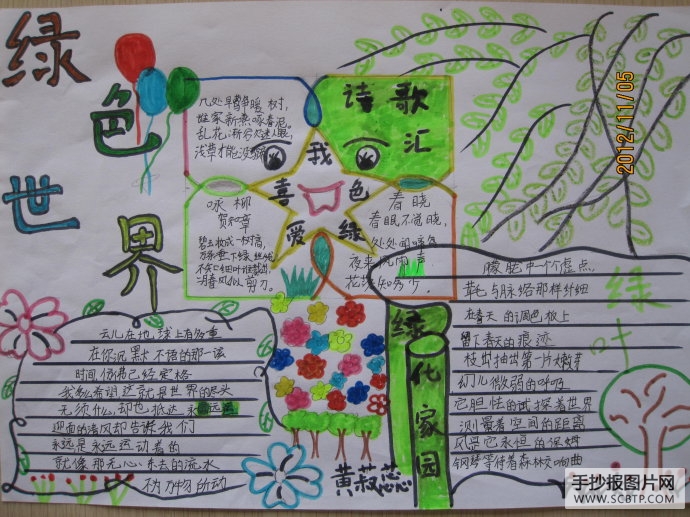 绿色世界
诗歌汇
我喜爱绿色
几处早莺争暖树,
谁家新燕啄春泥。
乱花渐欲迷人眼,
浅草才能没
咏柳
贺知章
碧玉妆成一树高,
万条垂下绿丝绦
不知细叶谁裁出,
春风似剪刀。
春晓
春眠不觉晓,
处处闻啼鸟
夜来风雨声
花落知多少。
云儿在地球上有多重
在你沉默不语的那一
时间仿佛已经定格
这就是世界的尽头
无须么,却也抵达永远
迎面的清风却告诉我们
永远是永远运动着的
就像那无心东去的流水
不为物所动
绿化家园
黄菽蕊
绿叶
朦胧中一个虚点
草毛与脉络那样纤细
在春天的调色板上
留下春天的痕迹
枝出抽出第一片嫩芽
幼儿微弱的呼吸
它胆怯的试探着世界
测量着空间的距离
风是它永恒的保姆
钢琴等待着森林交响曲
2012/11/05
手抄报图片网
WWW.SCBTP.COM